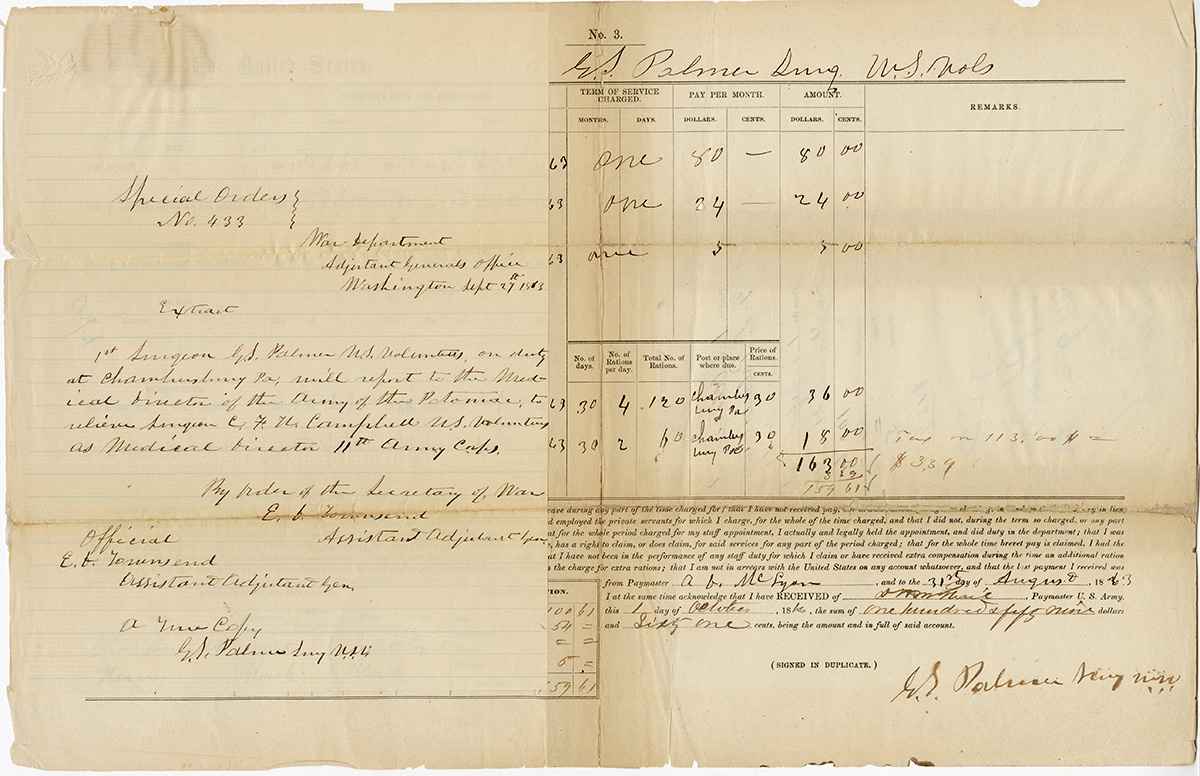 No. 3.
G.S. Palmer Surg. U.S. Vols
TERM OF SERVICE CHARGED. PAY PER MONTH. AMOUNT. REMARKS.
MONTHS. DAYS. DOLLARS. CENTS. DOLLARS. CENTS.
63 one 80 — 80 00
63 one 24 — 24 00
63 one 5 5 00
No. of days. No. of Rations per day. Total No. of Rations. Post or place where due. Price of Rations. CENTS.
63 30 4 120 Chambersburg Pa 30 36 00
63 30 2 60 Chambersburg Pa 30 18 00 Tax on 113.00 $ =
163 00 $ 3.39
3 39
159 61
Special Orders
No. 433
War Department
Adjutant Generals Office
Washington Sept 29th 1863
Extract
1st Surgeon G.S. Palmer U.S. Volunteers, on duty
at Chambersburg Pa, will report to the Med-
ical Director of the Army of the Potomac, to
relieve Surgeon C. F. H. Campbell U.S. Volunteers
as Medical Director 11th Army Corps.
By Order of the Secretary of War
E. D. Townsend
Assistant Adjutant Gen
Official
E. D. Townsend
Assistant Adjutant Gen
A True Copy
G.S. Palmer Surg U.S.V.
leave during any part of the time charged for; that I have not received pay, in lieu
d employed the private servants for which I charge, for the whole of the time charged, and that I did not, during the term so charged, or any part
at for the whole period charged for my staff appointment, I actually and legally held the appointment, and did duty in the department; that I was
er, has a right to claim, or does claim, for said services for any part of the period charged; that for the whole time brevet pay is claimed, I had the
at I have not been in the performance of any staff duty for which I claim or have received extra compensation during the time an additional ration
s the charge for extra rations; that I am not in arrears with the United States on any account whatsoever, and that the last payment I received was
from Paymaster A. D. McLyon, and to the 31st day of August, 1863
I at the same time acknowledge that I have RECEIVED of , Paymaster U. S. Army,
this 1 day of October, 186, the sum of one hundred fifty nine dollars
and Sixty one cents, being the amount and in full of said account.
TION.
100 61
54 =
= =
5 =
159 61
(SIGNED IN DUPLICATE.)
G.S. Palmer Surg